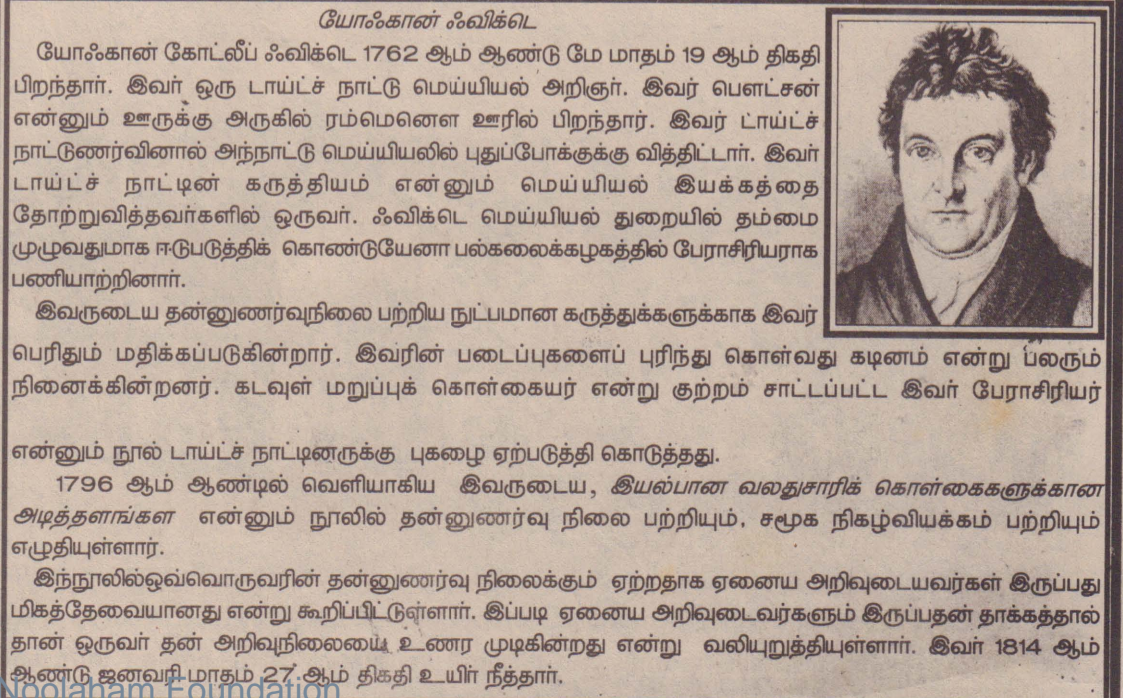 யோஃகான் ஃவிக்டெ
யோஃகான் கோட்லீப் ஃவிக்டெ 1762 ஆம் ஆண்டு மே மாதம் 19 ஆம் திகதி
பிறந்தார். இவர் ஒரு டாய்ட்ச் நாட்டு மெய்யியல் அறிஞர். இவர் பௌட்சன்
என்னும் ஊருக்கு அருகில் ரம்மெனௌ ஊரில் பிறந்தார். இவர் டாய்ட்ச்
நாட்டுணர்வினால் அந்நாட்டு மெய்யியலில் புதுப்போக்குக்கு வித்திட்டார். இவர்
டாய்ட்ச் நாட்டின் கருத்தியம் என்னும் மெய்யியல் இயக்கத்தை
தோற்றுவித்தவர்களில் ஒருவர். ஃவிக்டெ மெய்யியல் துறையில் தம்மை
முழுவதுமாக ஈடுபடுத்திக் கொண்டுயேனா பல்கலைக்கழகத்தில் பேராசிரியராக
பணியாற்றினார்.
இவருடைய தன்னுணர்வுநிலை பற்றிய நுட்பமான கருத்துக்களுக்காக இவர்
பெரிதும் மதிக்கப்படுகின்றார். இவரின் படைப்புகளைப் புரிந்து கொள்வது கடினம் என்று பலரும்
நினைக்கின்றனர். கடவுள் மறுப்புக் கொள்கையர் என்று குற்றம் சாட்டப்பட்ட இவர் பேராசிரியர்
என்னும் நூல் டாய்ட்ச் நாட்டினருக்கு புகழை ஏற்படுத்தி கொடுத்தது.
1796 ஆம் ஆண்டில் வெளியாகிய இவருடைய, இயல்பான வலதுசாரிக் கொள்கைகளுக்கான
அடித்தளங்கள என்னும் நூலில் தன்னுணர்வு நிலை பற்றியும், சமூக நிகழ்வியக்கம் பற்றியும்
எழுதியுள்ளார்.
இந்நூலில்ஒவ்வொருவரின் தன்னுணர்வு நிலைக்கும் ஏற்றதாக ஏனைய அறிவுடையவர்கள் இருப்பது
மிகத்தேவையானது என்று கூறிப்பிட்டுள்ளார். இப்படி ஏனைய அறிவுடைவர்களும் இருப்பதன் தாக்கத்தால்
தான் ஒருவர் தன் அறிவுநிலையை உணர முடிகின்றது என்று வலியுறுத்தியுள்ளார். இவர் 1814 ஆம்
ஆண்டு ஜனவரி மாதம் 27 ஆம் திகதி உயிர் நீத்தார்.
Noolaham Foundation